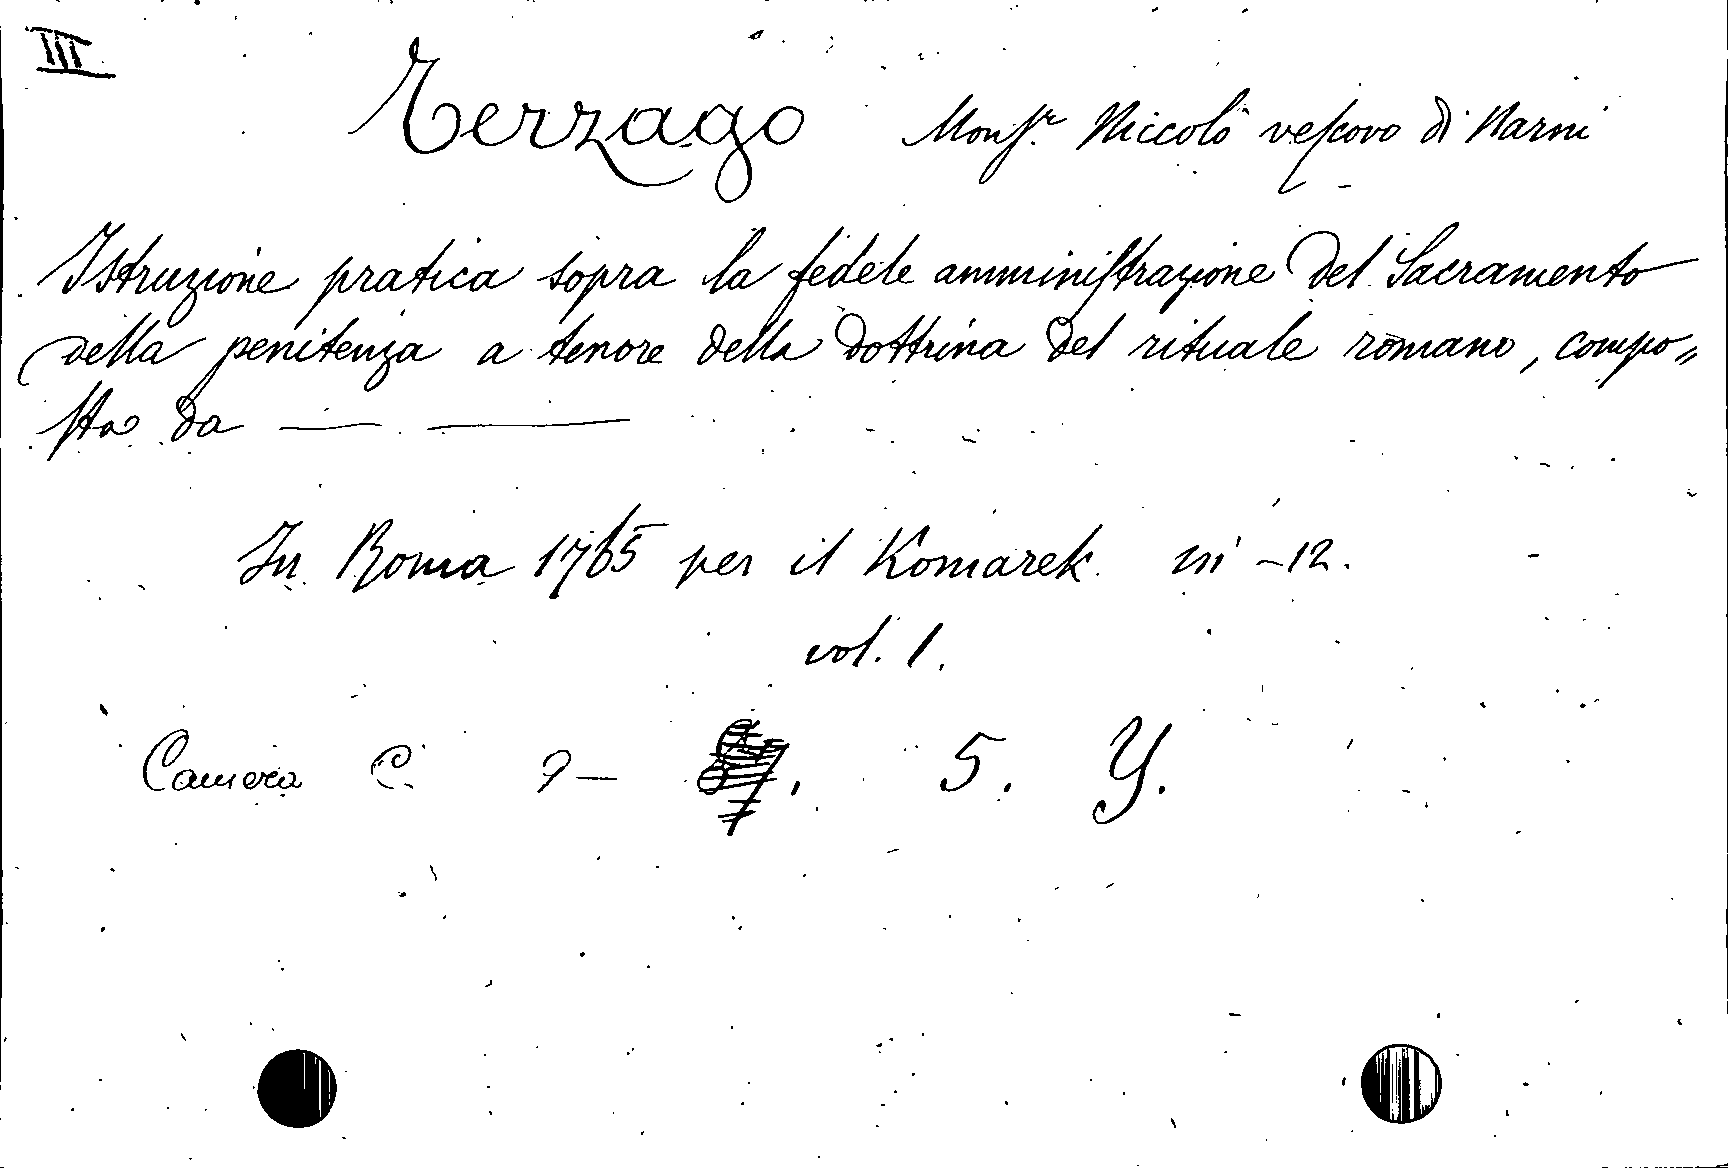 III
Terzago Monsr. Niccolò vescovo di Narni
Istruzione pratica sopra la fedele amministrazione del Sacramento
della penitenza a tenore della dottrina del rituale romano, compo„
sta da — —
In Roma 1765 per il Komarek in -12.
vol. 1.
Camera C. 9 — 5. Y.